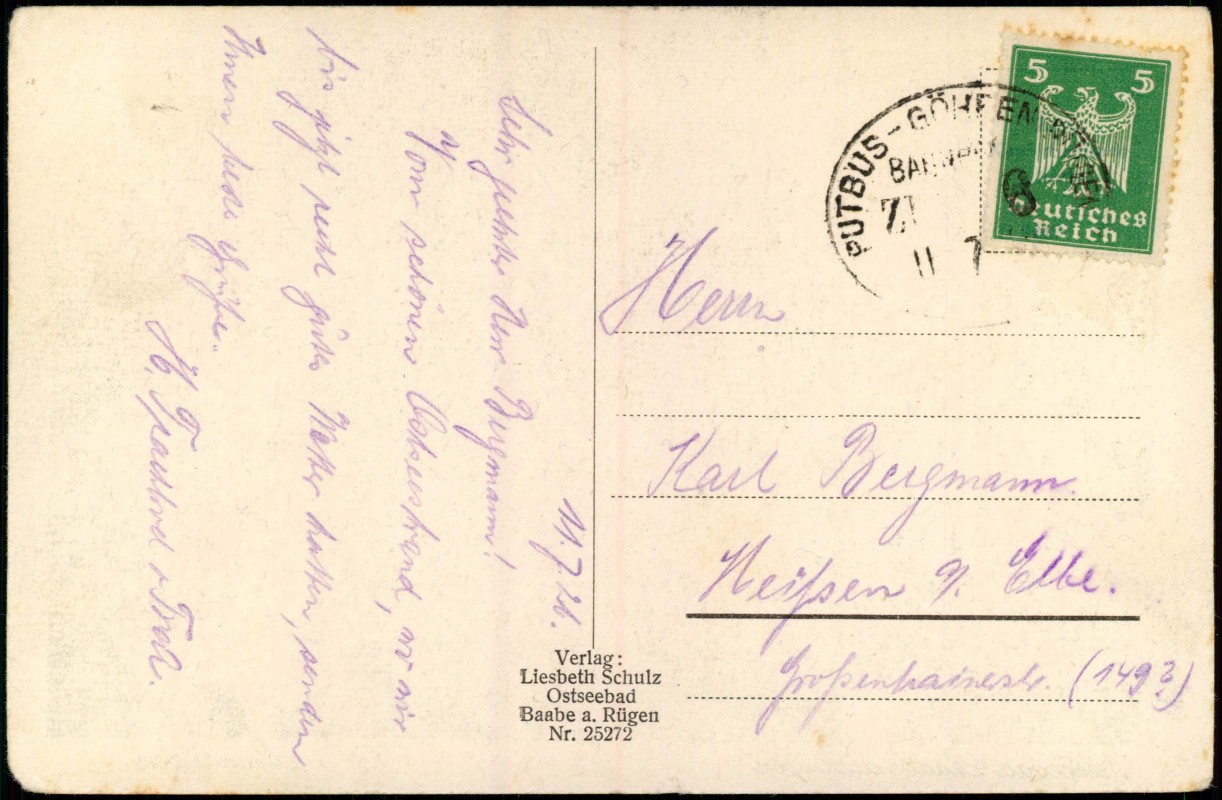 11.7.26.
Sehr geehrter Herr Bergmann!
Vom schönen Ostseestrand, wo wir
bis jetzt recht gutes Wetter hatten, senden
Ihnen beste Grüße.
H. u. Frau.
Verlag:
Liesbeth Schulz
Ostseebad
Baabe a. Rügen
Nr. 25272
PUTBUS-GÖHREN
BAHNPOST
ZUG 6
11 7
5 5
Deutsches
Reich
Herrn
Karl Bergmann.
Meißen a/ Elbe.
Großenhainerstr. (149?)